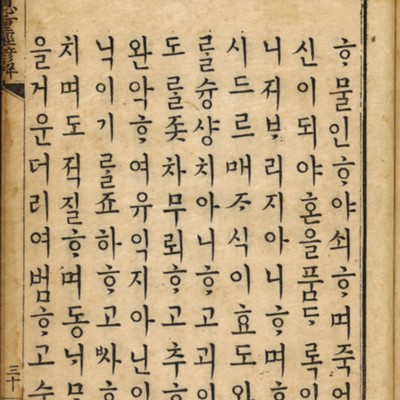 ᄒᆞ물인ᄒᆞ야쇠ᄒᆞ며죽어
신이되야혼을품ᄃᆞ록이
니저ᄇᆞ리지아니ᄒᆞ며ᄒᆞ
시드르매ᄌᆞ식이효도와
를슝샹치아니ᄒᆞ고괴이
도를좃차무뢰ᄒᆞ고추ᄒᆞ
완악ᄒᆞ여유익지아닌이
닉이기를죠하ᄒᆞ고ᄒᆞ
치며도적질ᄒᆞ며동
을거운더리여범ᄒᆞ고수
重經諺解
三十